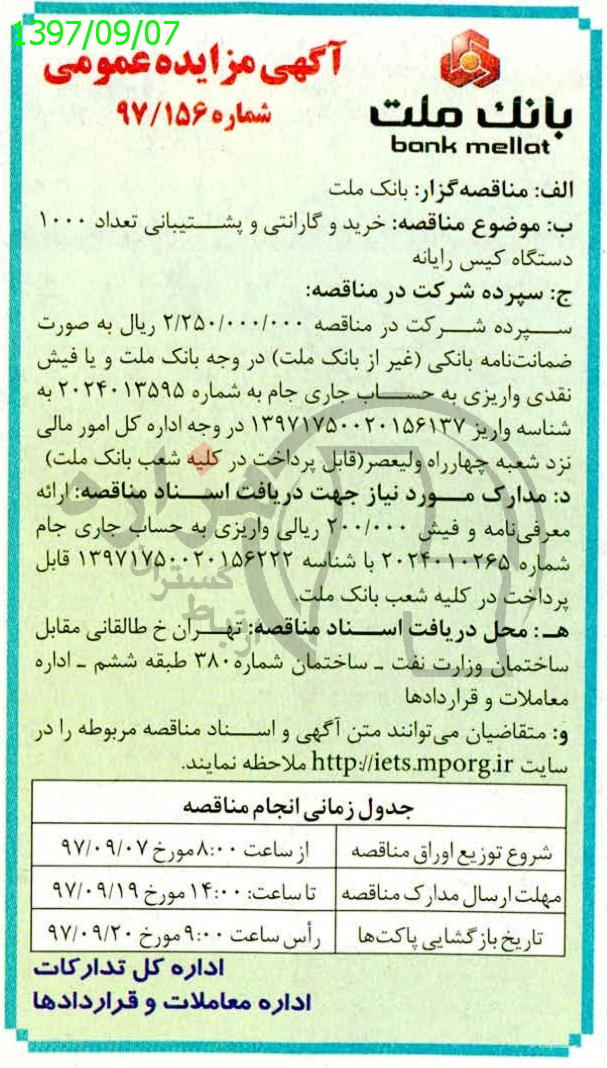 1397/09/07
آگهی مزایده عمومی
شماره ۹۷/۱۵۶
بانک ملت
bank mellat
الف: مناقصه‌گزار: بانک ملت
ب: موضوع مناقصه: خرید و گارانتی و پشتیبانی تعداد ۱۰۰۰
دستگاه کیس رایانه
ج: سپرده شرکت در مناقصه:
سپرده شرکت در مناقصه ۲/۲۵۰/۰۰۰/۰۰۰ ریال به صورت
ضمانت‌نامه بانکی (غیر از بانک ملت) در وجه بانک ملت و یا فیش
نقدی واریزی به حساب جاری جام به شماره ۲۰۲۴۰۱۳۵۹۵ به
شناسه واریز ۱۳۹۷۱۷۵۰۰۲۰۱۵۶۱۳۷ در وجه اداره کل امور مالی
نزد شعبه چهارراه ولیعصر(قابل پرداخت در کلیه شعب بانک ملت)
د: مدارک مورد نیاز جهت دریافت اسناد مناقصه: ارائه
معرفی‌نامه و فیش ۲۰۰/۰۰۰ ریالی واریزی به حساب جاری جام
شماره ۲۰۲۴۰۱۰۲۶۵ با شناسه ۱۳۹۷۱۷۵۰۰۲۰۱۵۶۲۲۲ قابل
پرداخت در کلیه شعب بانک ملت.
هـ: محل دریافت اسناد مناقصه: تهران خ طالقانی مقابل
ساختمان وزارت نفت ـ ساختمان شماره۳۸۰ طبقه ششم ـ اداره
معاملات و قراردادها
و: متقاضیان می‌توانند متن آگهی و اسناد مناقصه مربوطه را در
سایت http://iets.mporg.ir ملاحظه نمایند.
جدول زمانی انجام مناقصه
شروع توزیع اوراق مناقصه از ساعت ۸:۰۰ مورخ ۹۷/۰۹/۰۷
مهلت ارسال مدارک مناقصه تا ساعت: ۱۴:۰۰ مورخ ۹۷/۰۹/۱۹
تاریخ بازگشایی پاکت‌ها رأس ساعت ۹:۰۰ مورخ ۹۷/۰۹/۲۰
اداره کل تدارکات
اداره معاملات و قراردادها